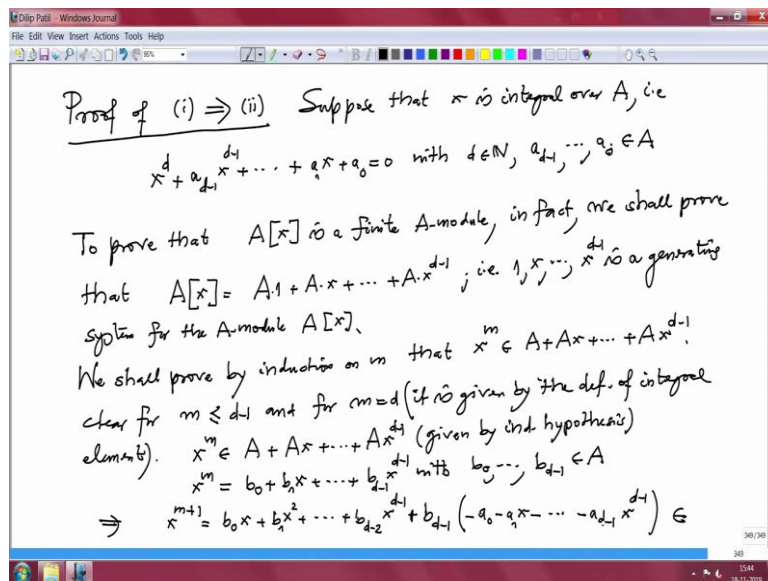 Dilip Patil - Windows Journal
File Edit View Insert Actions Tools Help
96%
Proof of (i) ⇒ (ii) Suppose that x is integral over A, i.e
x^d + a_{d-1} x^{d-1} + ... + a_1 x + a_0 = 0 with d ∈ ℕ, a_{d-1}, ..., a_0 ∈ A
To prove that A[x] is a finite A-module, in fact, we shall prove
that A[x] = A.1 + A.x + ... + A.x^{d-1}, i.e. 1, x, ..., x^{d-1} is a generating
system for the A-module A[x].
We shall prove by induction on m that x^m ∈ A + Ax + ... + Ax^{d-1}.
clear for m ≤ d-1 and for m=d (it is given by the def. of integral
elements). x^m ∈ A + Ax + ... + Ax^{d-1} (given by ind. hypothesis)
x^m = b_0 + b_1 x + ... + b_{d-1} x^{d-1} with b_0, ..., b_{d-1} ∈ A
⇒ x^{m+1} = b_0 x + b_1 x^2 + ... + b_{d-2} x^{d-1} + b_{d-1} (-a_0 - a_1 x - ... - a_{d-1} x^{d-1}) ∈
349/349
349
15:44
18-11-2019